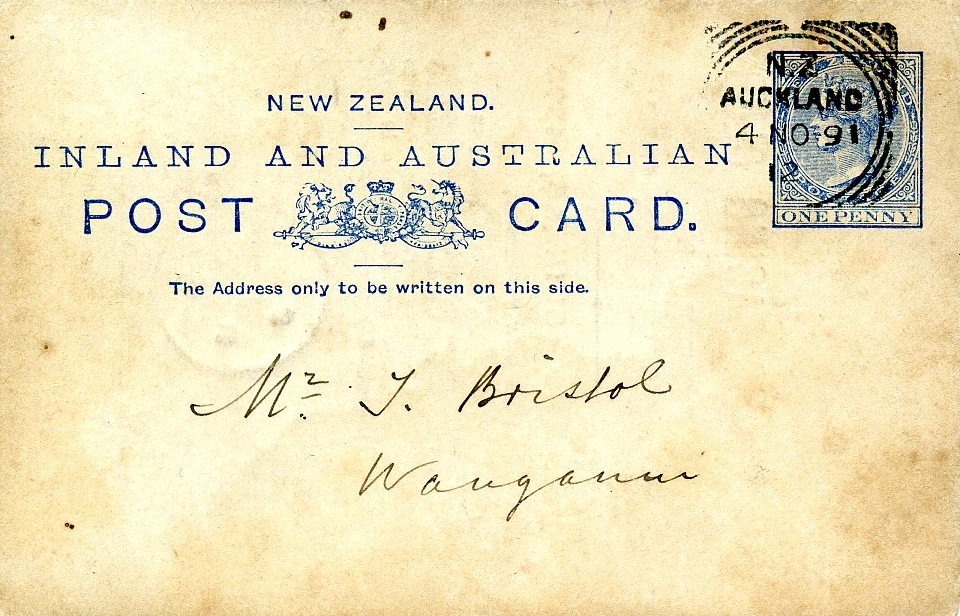 NEW ZEALAND.
INLAND AND AUSTRALIAN
POST CARD.
The Address only to be written on this side.
N.Z
AUCKLAND
4 NO 91
ONE PENNY
Mr. J. Bristol
Wanganui